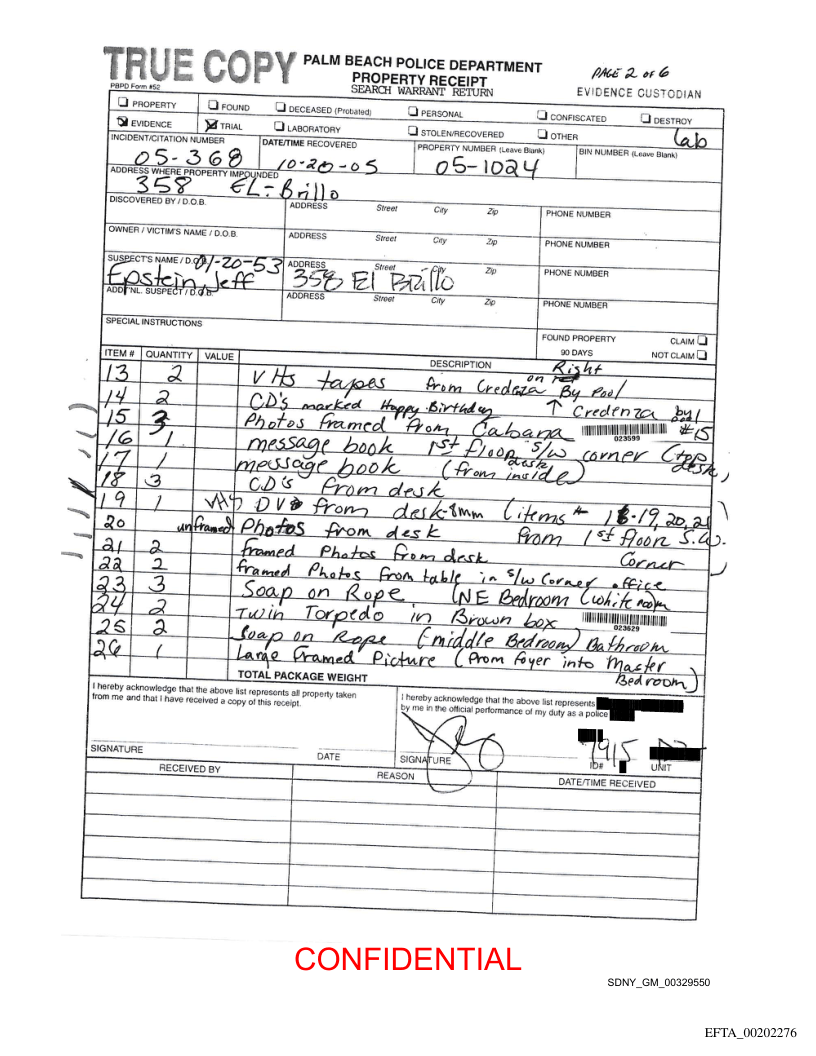 TRUE COPY
PALM BEACH POLICE DEPARTMENT
PROPERTY RECEIPT
SEARCH WARRANT RETURN
PAGE 2 of 6
EVIDENCE CUSTODIAN
PBPD Form #52
PROPERTY FOUND DECEASED (Probated) PERSONAL CONFISCATED DESTROY
EVIDENCE TRIAL LABORATORY STOLEN/RECOVERED OTHER Lab
INCIDENT/CITATION NUMBER DATE/TIME RECOVERED PROPERTY NUMBER (Leave Blank) BIN NUMBER (Leave Blank)
05-368 10-20-05 05-1024
ADDRESS WHERE PROPERTY IMPOUNDED
358 EL-Brillo
DISCOVERED BY / D.O.B. ADDRESS Street City Zip PHONE NUMBER
OWNER / VICTIM'S NAME / D.O.B. ADDRESS Street City Zip PHONE NUMBER
SUSPECT'S NAME / D.O.B. 01-20-53 ADDRESS Street City Zip PHONE NUMBER
Epstein, Jeff 358 El Brillo
ADDT'NL. SUSPECT / D.O.B. ADDRESS Street City Zip PHONE NUMBER
SPECIAL INSTRUCTIONS
FOUND PROPERTY CLAIM
90 DAYS NOT CLAIM
ITEM # QUANTITY VALUE DESCRIPTION
13 2 VHS tapes from Credenza on Right By Pool
14 2 CD's marked Happy Birthday ↑ Credenza by
15 3 Photos framed from Cabana #15
023599
16 1 message book 1st floor S/W corner (top desk)
17 1 message book (from inside desk)
18 3 CD's from desk
19 1 VHS DV from desk-8mm (items # 18-19,20,21
20 unframed Photos from desk from 1st floor S.W.
21 2 framed Photos from desk Corner)
22 2 framed Photos from table in S/W Corner office
23 3 Soap on Rope (NE Bedroom (white room
24 2 Twin Torpedo in Brown box
023629
25 2 Soap on Rope (middle Bedroom) Bathroom
26 1 Large Framed Picture (From foyer into Master Bedroom)
TOTAL PACKAGE WEIGHT
I hereby acknowledge that the above list represents all property taken
from me and that I have received a copy of this receipt.
I hereby acknowledge that the above list represents
by me in the official performance of my duty as a police
915
SIGNATURE DATE SIGNATURE ID# UNIT
RECEIVED BY REASON DATE/TIME RECEIVED
CONFIDENTIAL
SDNY_GM_00329550
EFTA_00202276